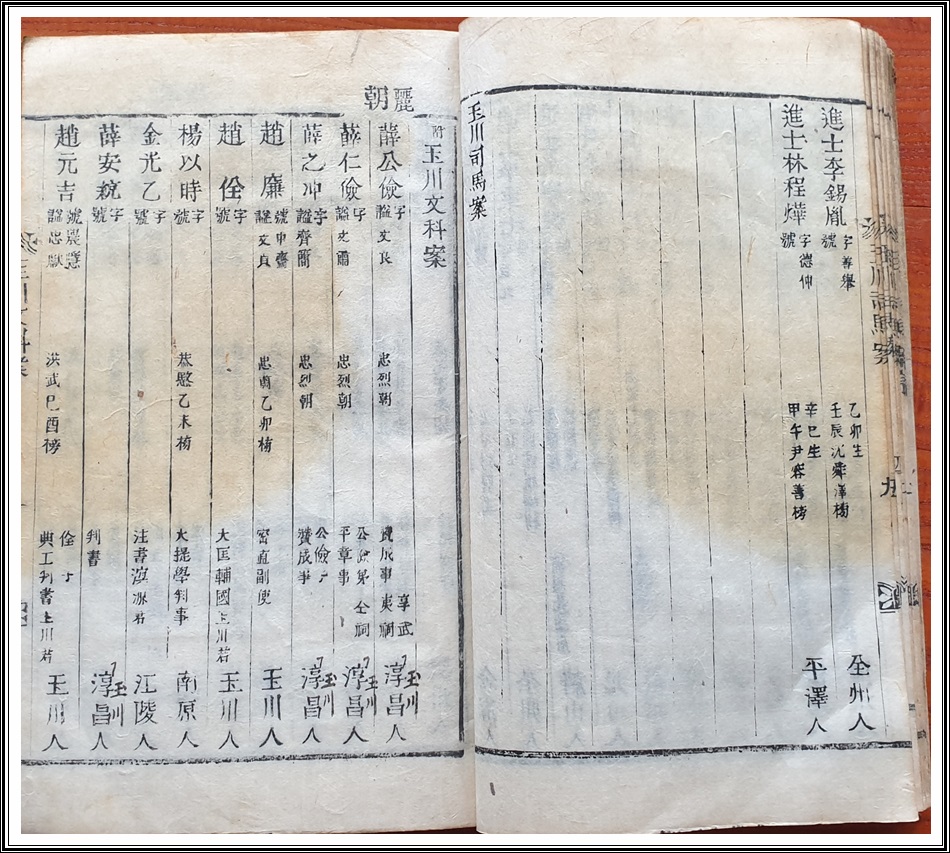 進士李錫胤 字善擧 號 乙卯生 壬辰沈舜澤榜 全州人
進士林程燁 字德仲 號 辛巳生 甲午尹容善榜 平澤人
玉川司馬案
附玉川文科案
麗朝
薛公儉 字 諡文良 忠烈朝 贊成事 享武夷祠 玉川 淳昌人
薛仁儉 字 諡 忠烈朝 公儉弟 平章事 仝祠 玉川 淳昌人
薛之冲 字 諡齊簡 忠烈朝 公儉子 贊成事 玉川 淳昌人
趙廉 號申齋 諡文貞 忠肅乙卯榜 密直副使 玉川人
趙佺 字 號 大匡輔國玉川君 玉川人
楊以時 字 號 恭愍乙未榜 大提學判事 南原人
金光乙 字 號 注書 江陵人
薛安統 字 號 判書 玉川 淳昌人
趙元吉 號農隱 諡忠獻 洪武己酉榜 佺子 典工判書玉川君 玉川人